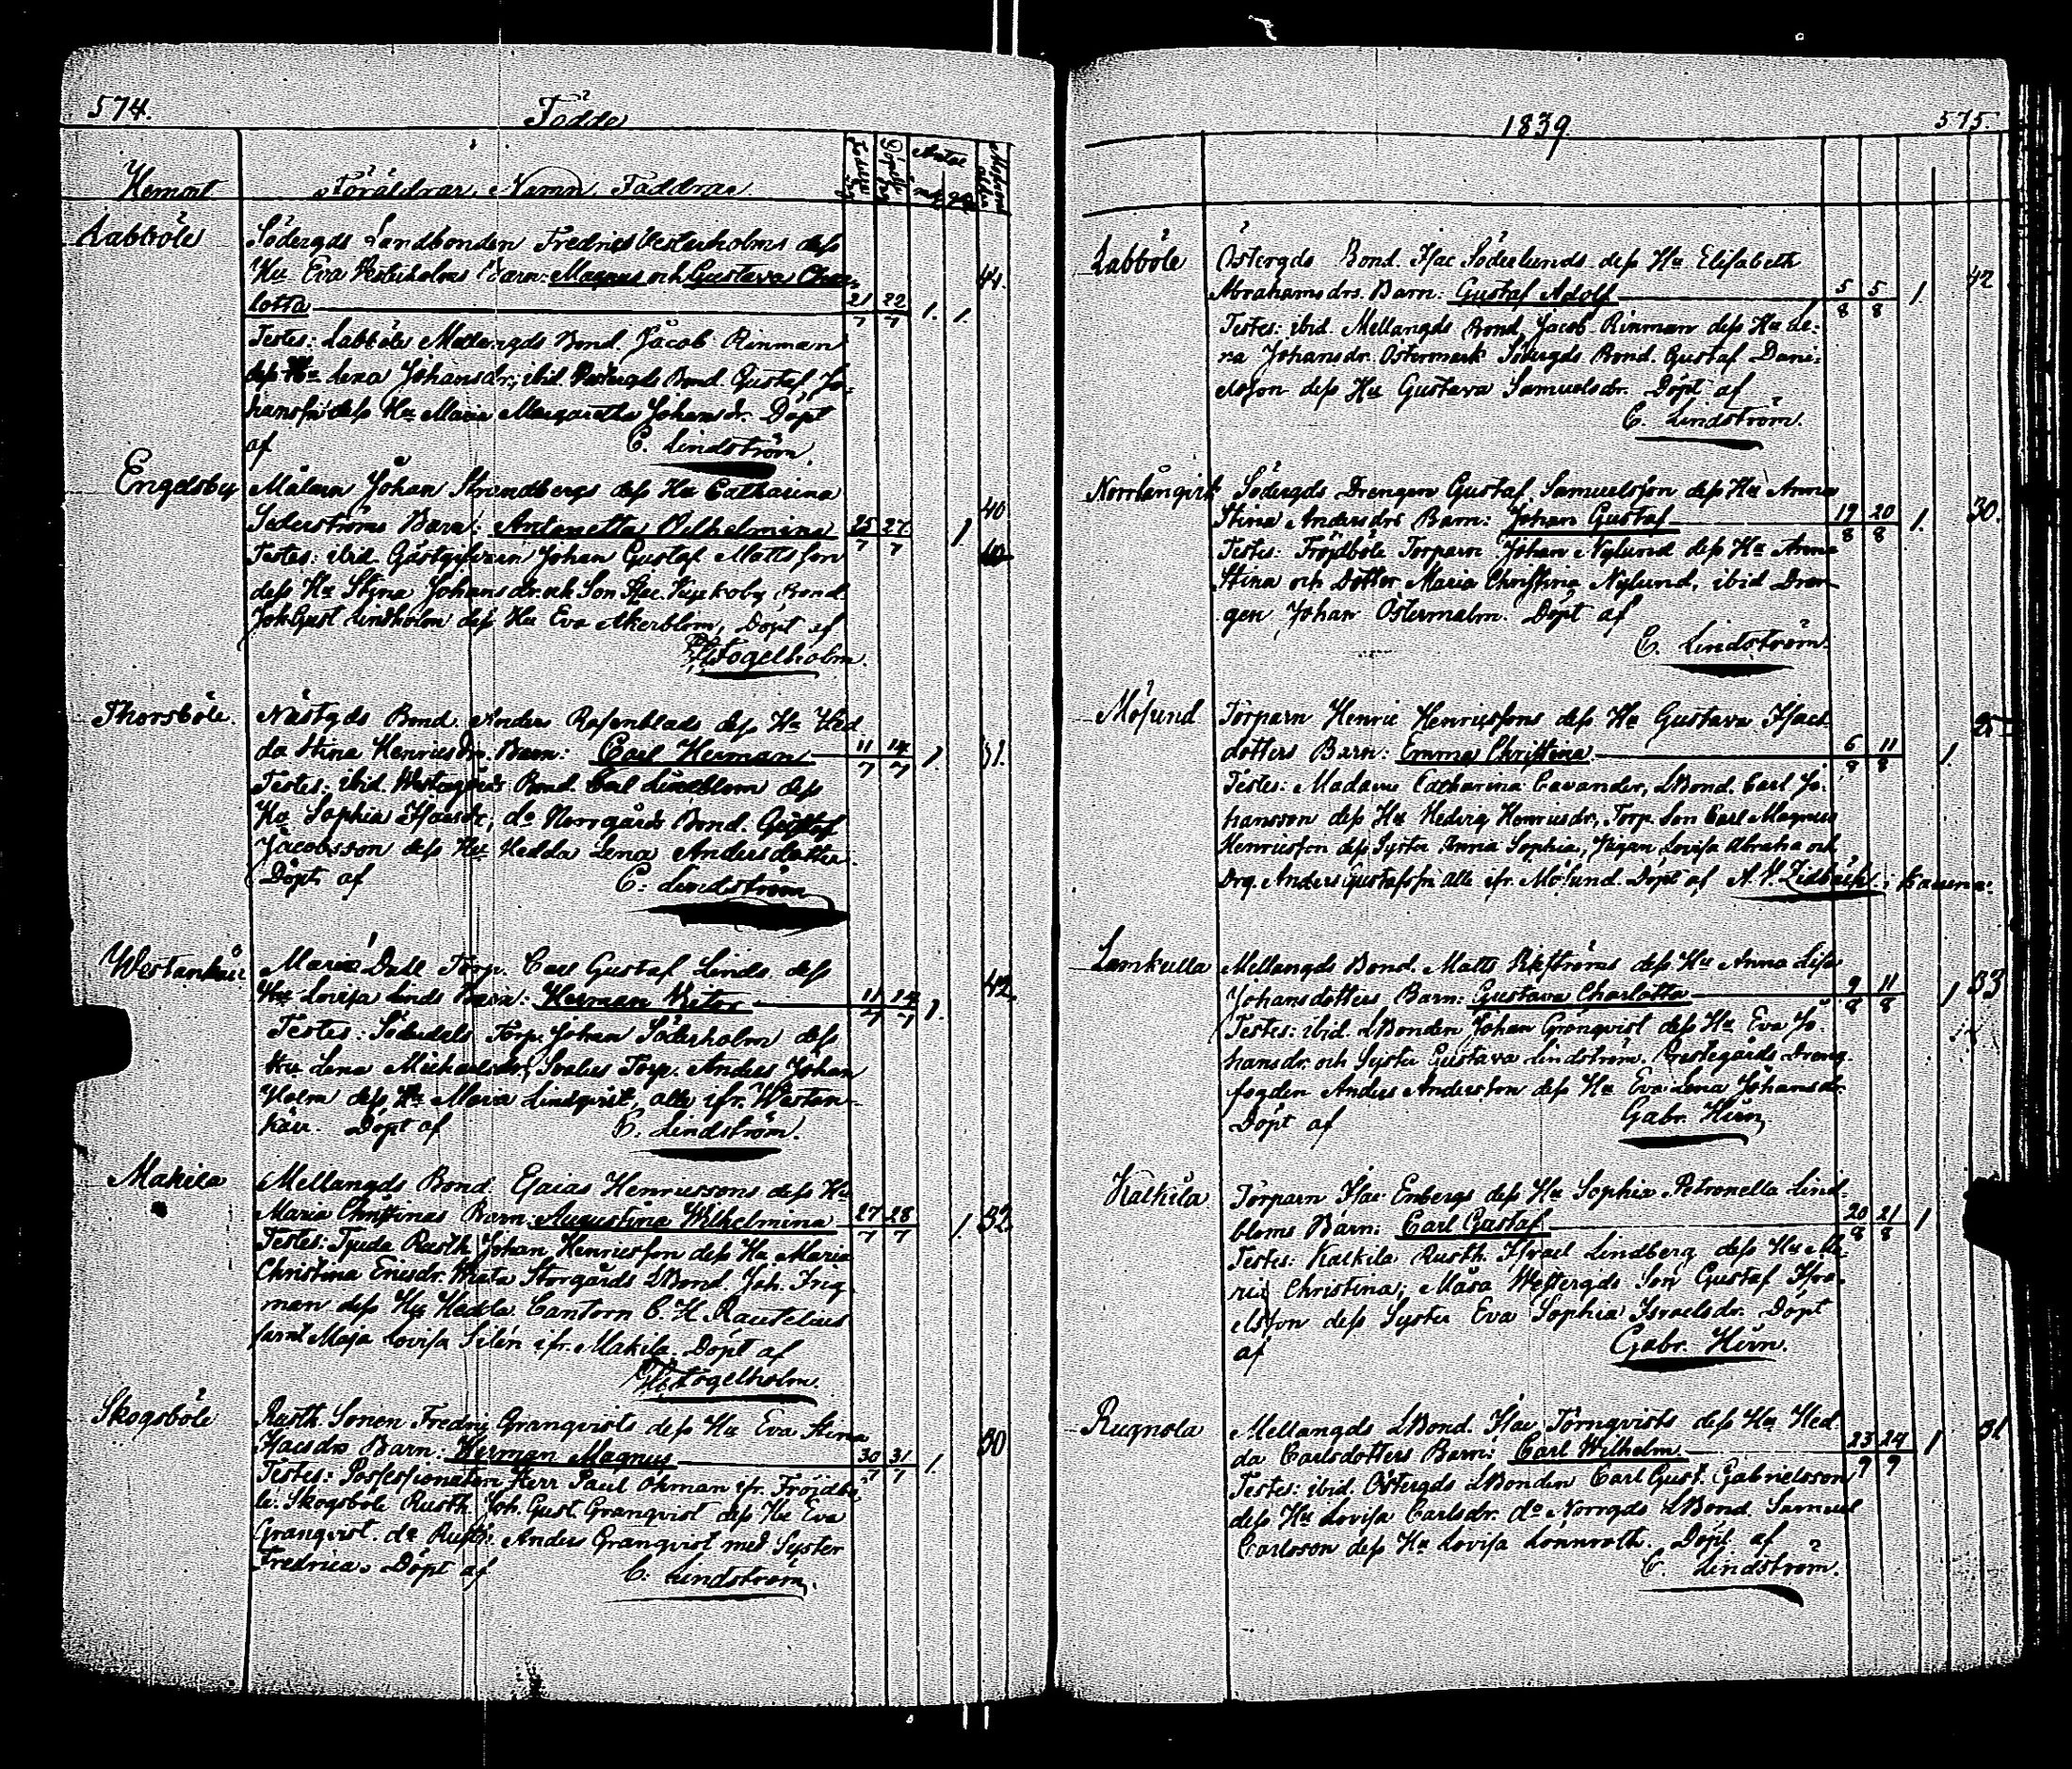 574.
Födde
Hemort
Föräldrar, Namn, Faddrar
Födelse dag
Döpelse dag
Antal
mk. qk.
Moderns ålder
Labböle
Södergds Landbonden Fredric Vesterholms dess
Hu Eva Vesterholms Barn: Magnus och Gustava Char-
lotta 21/7 22/7 1. 1. 44.
Testes: Labböles Mellangds Bond. Jacob Rinman
dess Hu Lena Johansdr; ibid. Vestergds Bond. Gustaf Jo-
hansson dess Hu Maria Margaretha Johansdr. Döpt
af C. Lindström.
Engelsby
Målarn Johan Strandbergs dess Hu Catharina
Söderströms Barn: Antonetta Vilhelmina 25/7 27/7 1 40
Testes: ibid. Gästgifvarn Johan Gustaf Mattsson
dess Hu Stina Johansdr. och Son Isac. Bond.
Joh Gust Lindholm dess Hu Eva Åkerblom, Döpt af
Fogelholm.
Thorsböle.
Nästgds Bond. Anders Rosenblads dess Hu Hed
da Stina Henricsdrs Barn: Carl Herman 11/7 14/7 1. 31.
Testes: ibid. Westergårds Bond. Carl Lindblom dess
Hu Sophia Isacsdr; do Norrgårds Bond. Gustaf
Jacobsson dess Hu Hedda Lena Andersdotter.
Döpt af C. Lindström
Westankärr
Maria Dahl Torp. Carl Gustaf Linds dess
Hu Lovisa Linds Barn: Herman Victor 11/7 14/7 1. 42.
Testes: Söderdals Torp. Johan Söderholm dess
Hu Lena Michaelsdr; Torp. Anders Johan
Holm dess Hu Maria Lindqvist, alla ifr. Westan-
kärr. Döpt af C. Lindström.
Makila
Mellangds Bond. Esaias Henricssons dess Hu
Maria Christinas Barn: Augustina Wilhelmina 27/7 28/7 1. 32.
Testes: Tjuda Rusth. Johan Henricsson dess Hu Maria
Christina Ericsdr. Wreta Storgårds LBond. Joh. Frig
man dess Hu Hedda. Cantorn C. H. Rautelius
samt Maja Lovisa Silén ifr. Makila. Döpt af
Fogelholm.
Skogsböle
Rusth. Sonen Fredric Granqvists dess Hu Eva Stina
Isacsdrs Barn: Herman Magnus 30/7 31/7 1. 30
Testes: Possessionaten Herr Paul Öhman ifr. Fröjdbö
le. Skogsböle Rusth. Joh. Gust. Granqvist dess Hu Eva
Granqvist. do Rusth. Anders Granqvist med Syster
Fredrica. Döpt af C. Lindström.
1839.
575.
Labböle
Östergds Bond. Isac Söderlunds dess Hu Elisabeth
Abrahamsdrs. Barn: Gustaf Adolf 5/8 5/8 1. 42
Testes: ibid. Mellangds Bond. Jacob Rinman dess Hu Le-
na Johansdr. Östermark Södergds Bond. Gustaf Dani-
elsson dess Hu Gustava Samuelsdr. Döpt af
C. Lindström.
Norrlångvik
Södergds Drengen Gustaf Samuelsson dess Hu Anna
Stina Andersdrs Barn: Johan Gustaf 19/8 20/8 1. 30.
Testes: Fröjdböle Torparn Johan Nylund dess Hu Anna
Stina och Dotter Maria Christina Nylund, ibid Dren
gen Johan Östermalm. Döpt af
C. Lindström.
Mösund
Torparn Henric Henricssons dess Hu Gustava Isacs
dotters Barn: Emma Christina 6/8 11/8 1.
Testes: Madame Catharina Cavander, LBond. Carl Jo-
hansson dess Hu Hedvig Henricsdr, Torp. Son Carl Magnus
Henricsson dess Syster Anna Sophia, Pigan Lovisa Abraha och
Drg. Anders Gustafsson alla ifr. Mösund. Döpt af A. V. Lidbäck
Lamkulla
Mellangds Bond. Matts Rikströms dess Hu Anna Lisa
Johansdotters Barn: Gustava Charlotta 9/8 11/8 1 33
Testes: ibid. LBonden Johan Grönqvist dess Hu Eva Jo-
hansdr. och Syster Gustava Lindström. Prestegårds Dreng-
fogden Anders Andersson dess Hu Eva Lena Johansdr.
Döpt af Gabr. Hirn
Kalkila
Torparn Isac Enbergs dess Hu Sophia Petronella Lind-
bloms Barn: Carl Gustaf 20/8 21/8 1
Testes: Kalkila Rusth. Israel Lindberg dess Hu Ma-
ria Christina; Måsa Westergds Son Gustaf Isra-
elsson dess Syster Eva Sophia Israelsdr. Döpt
af Gabr. Hirn.
Rugnola
Mellangds LBond. Isac Törnqvists dess Hu Hed
da Carlsdotters Barn: Carl Wilhelm 23/9 24/9 1 31
Testes: ibid. Östergds LBonden Carl Gust. Gabrielsson
dess Hu Lovisa Carlsdr. do Norrgds LBond. Samuel
Carlsson dess Hu Lovisa Lönnroth. Döpt af
C. Lindström.